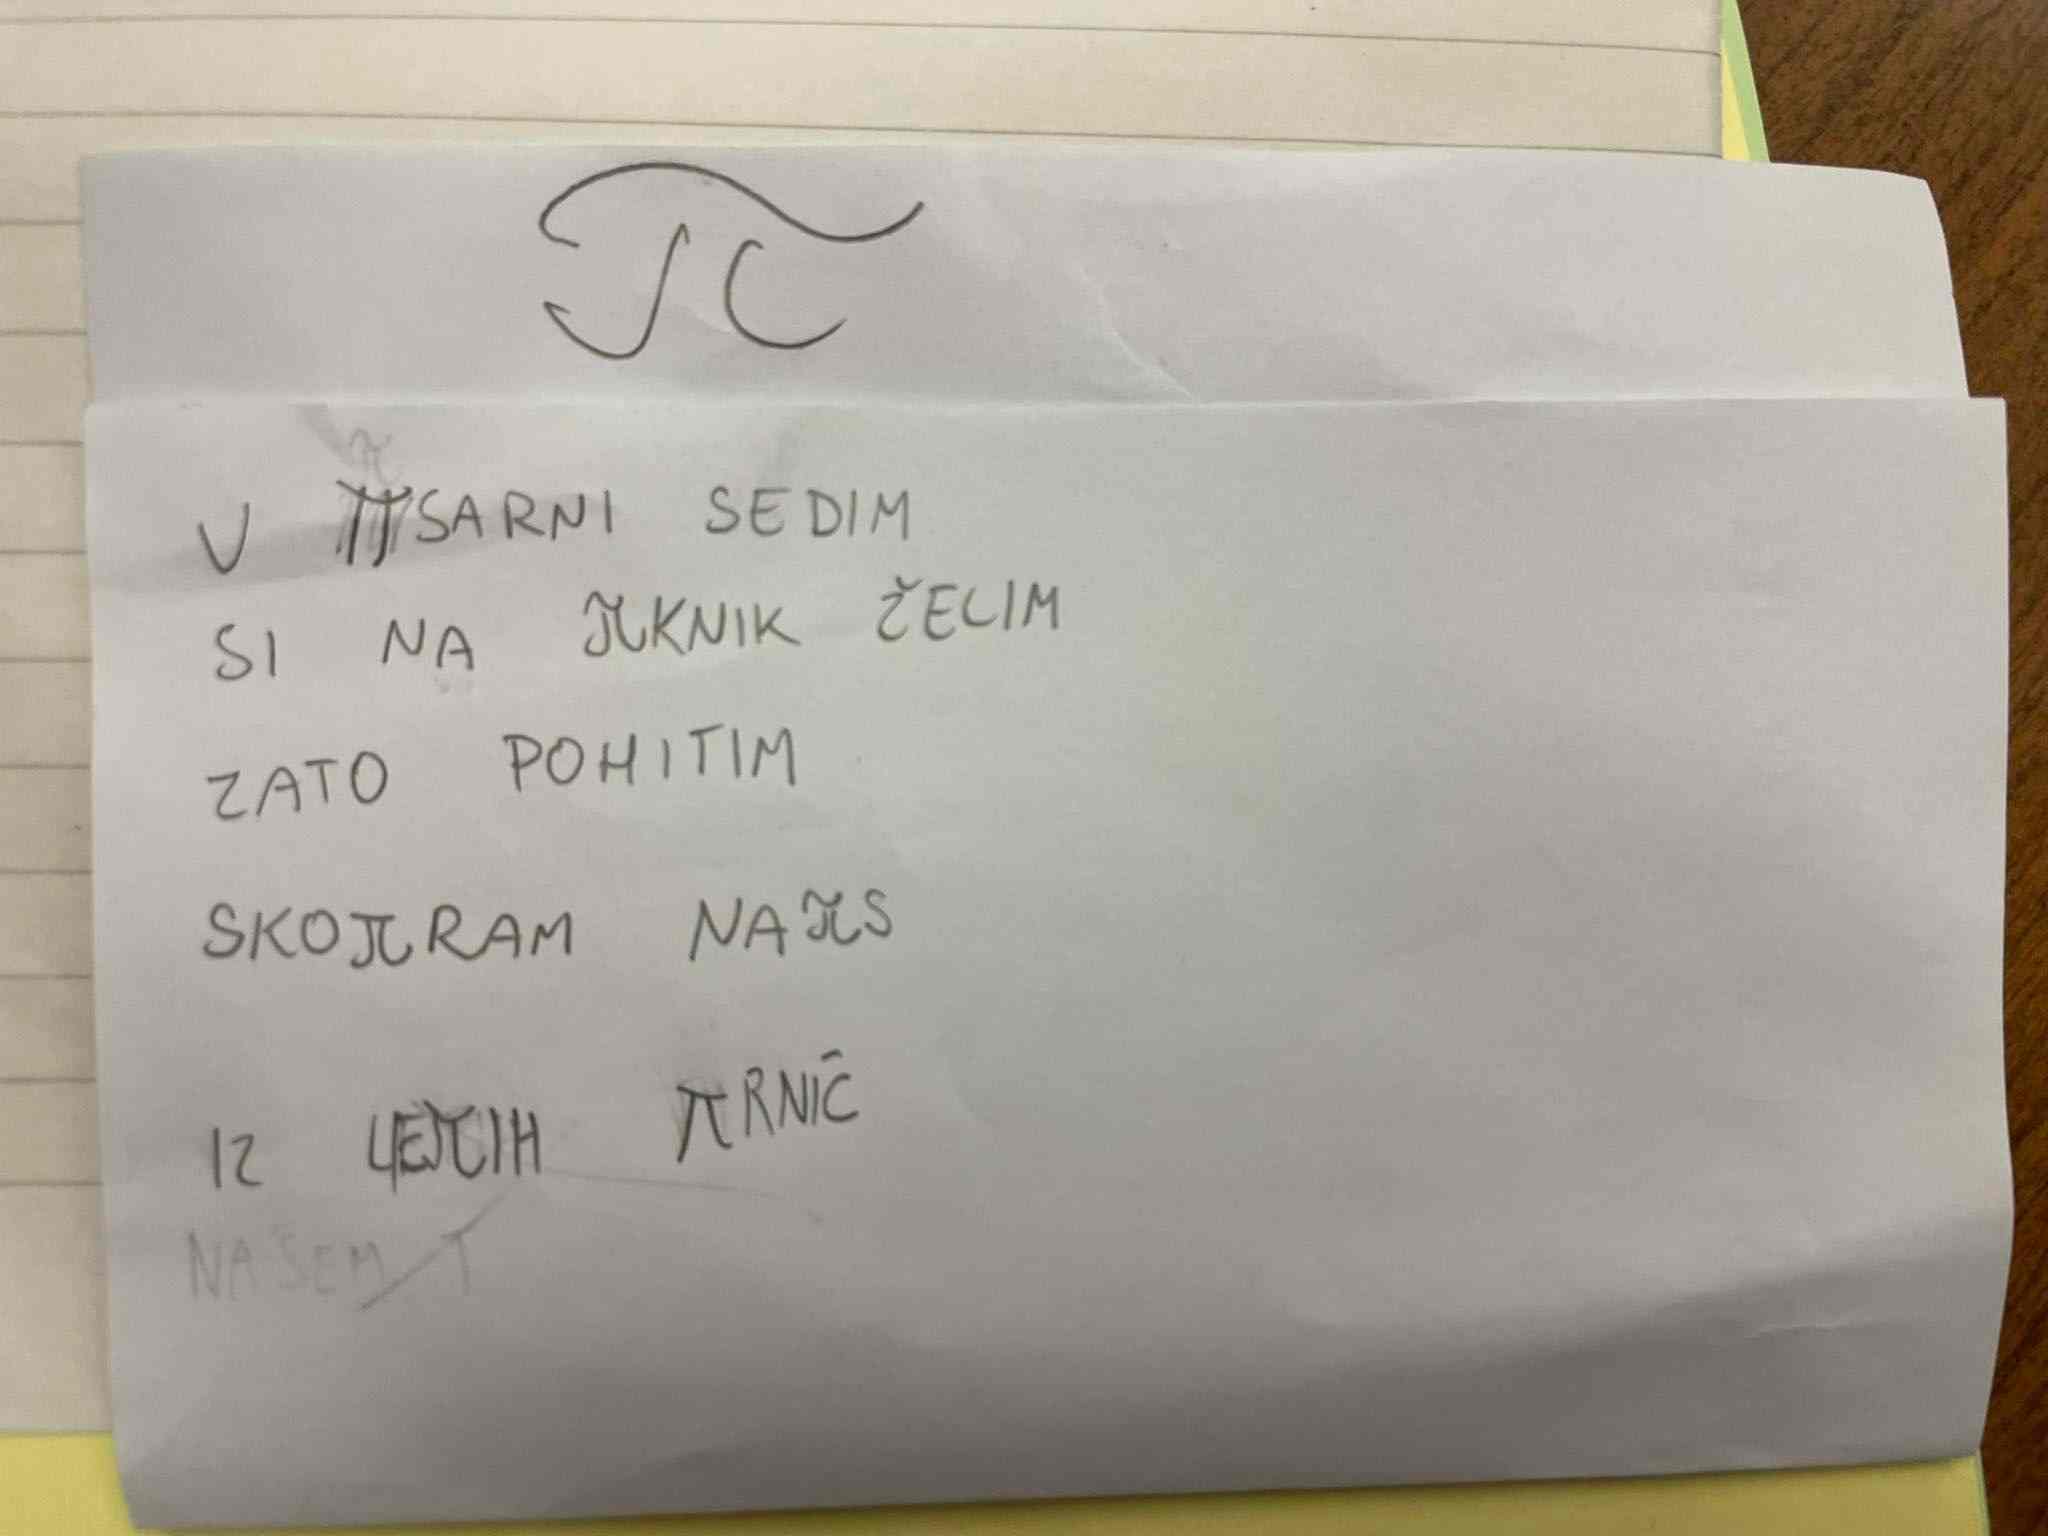 π
V πSARNI SEDIM
SI NA πKNIK ŽELIM
ZATO POHITIM
SKOπRAM NAπS
IZ πRNIČ
NAŠEM T